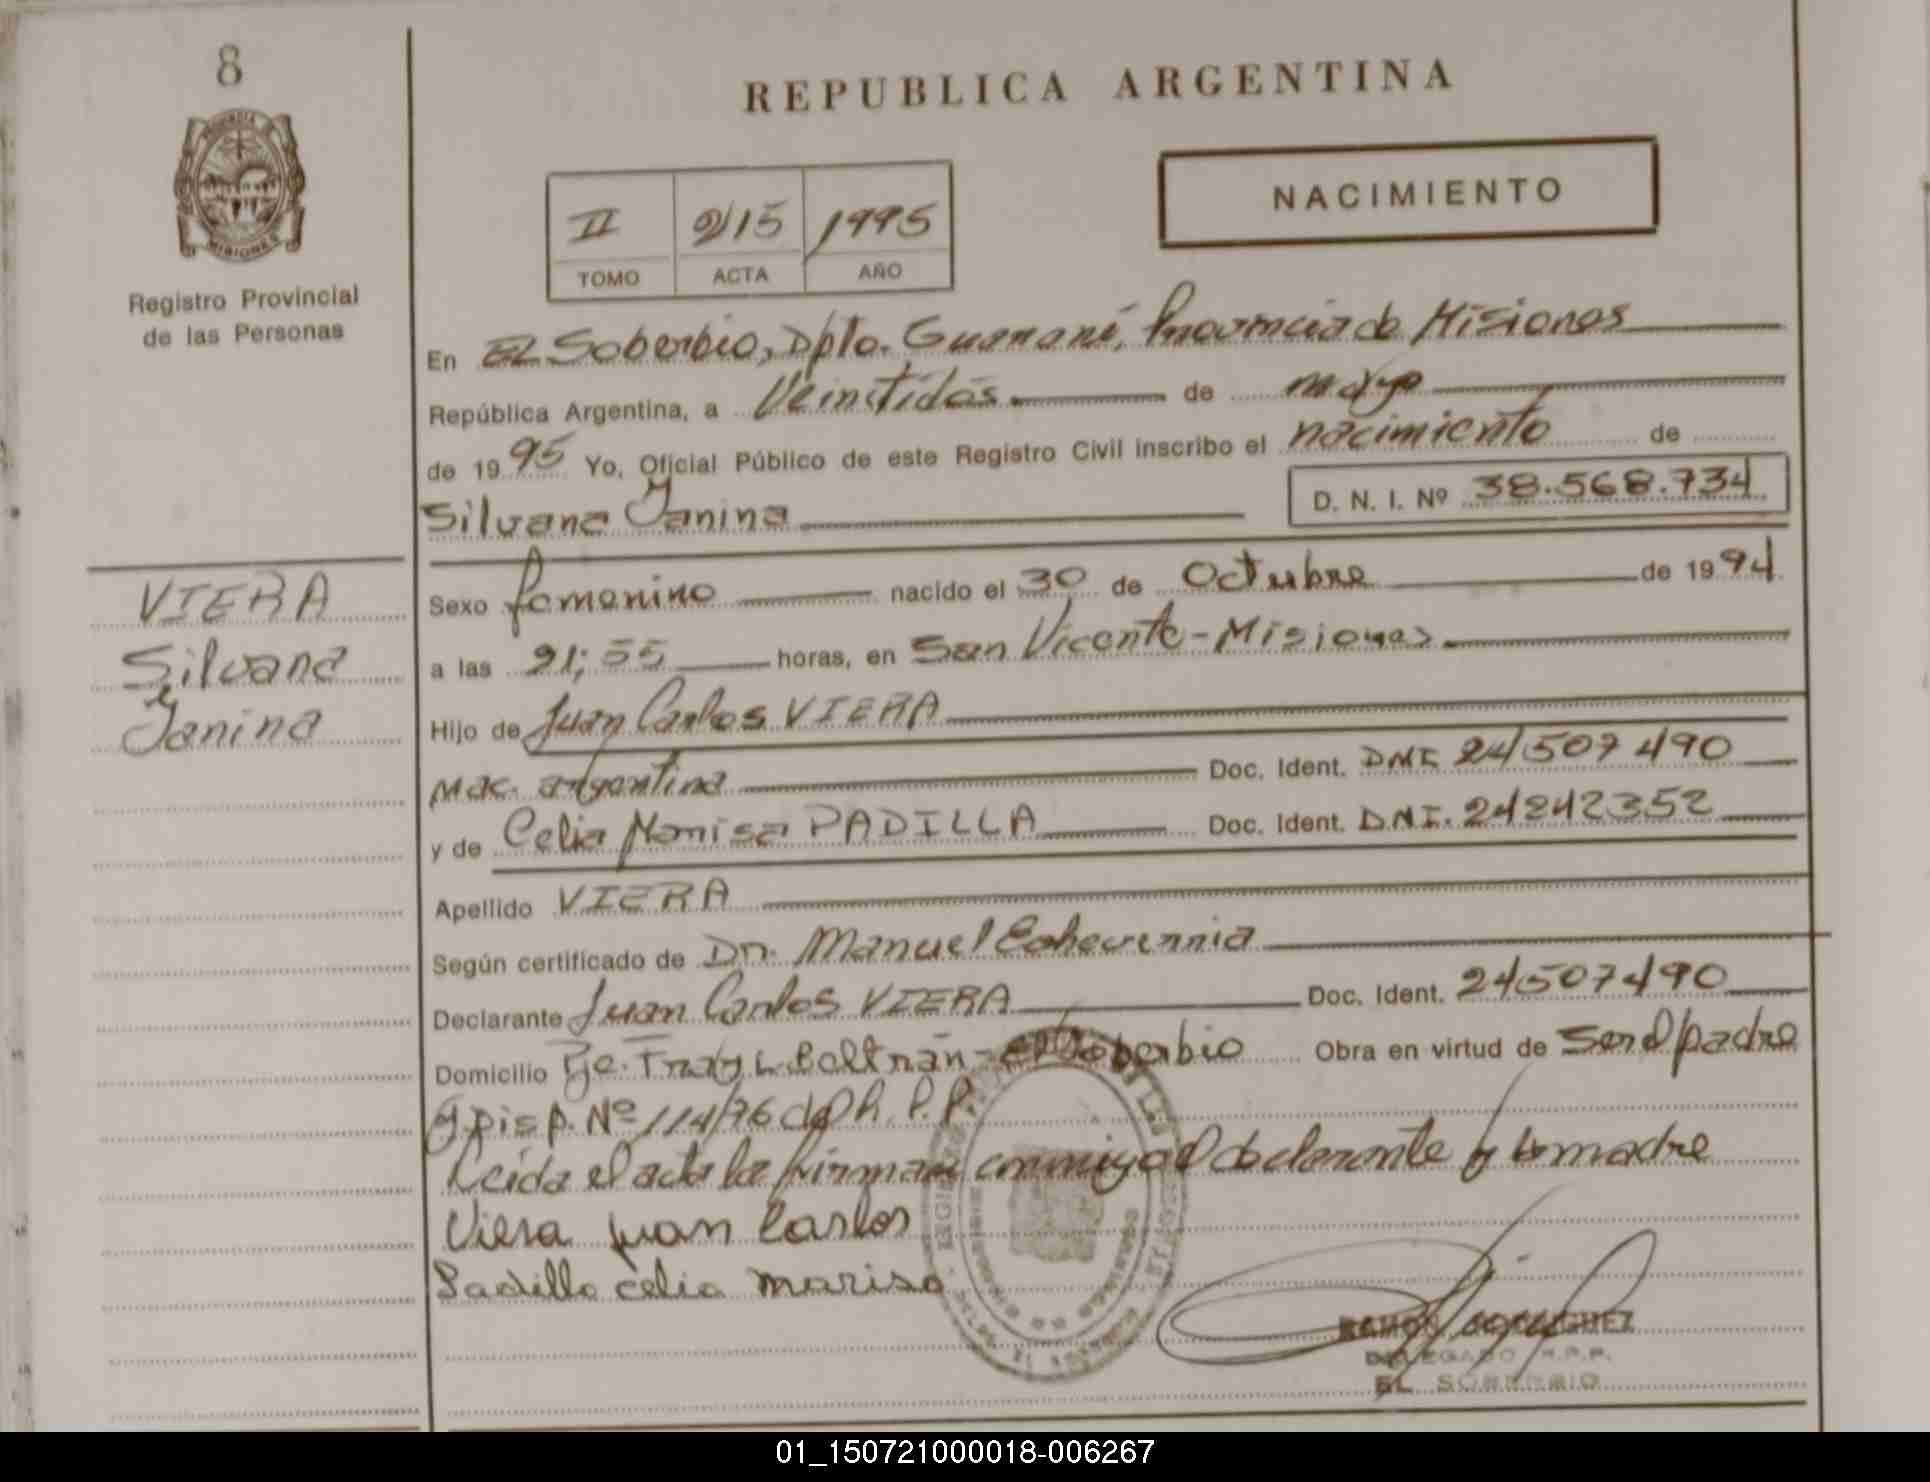 8
REPUBLICA ARGENTINA
NACIMIENTO
II 215 1995
TOMO ACTA AÑO
Registro Provincial
de las Personas
En El Soberbio, Dpto. Guaraní, Provincia de Misiones
República Argentina, a Veintidós de mayo
de 19 95 Yo, Oficial Público de este Registro Civil inscribo el nacimiento de
Silvana Yanina D. N. I. Nº 38.568.734
VIERA
Silvana
Yanina
Sexo femenino nacido el 30 de Octubre de 19 94
a las 21;55 horas, en San Vicente - Misiones
Hijo de Juan Carlos VIERA
Nac. argentina Doc. Ident. DNI 24507490
y de Celia Marisa PADILLA Doc. Ident. D.N.I. 24242352
Apellido VIERA
Según certificado de Dr. Manuel Echeverria
Declarante Juan Carlos VIERA Doc. Ident. 24507490
Domicilio Pje. Fray L. Beltrán - El Soberbio Obra en virtud de Ser el padre
y Disp. Nº 114/76 R.P.P.
Leida el acta la firman conmigo el declarante y la madre
Viera Juan Carlos
Padilla celia marisa
RAMON
DELEGADO R.P.P.
EL SOBERBIO
01_150721000018-006267